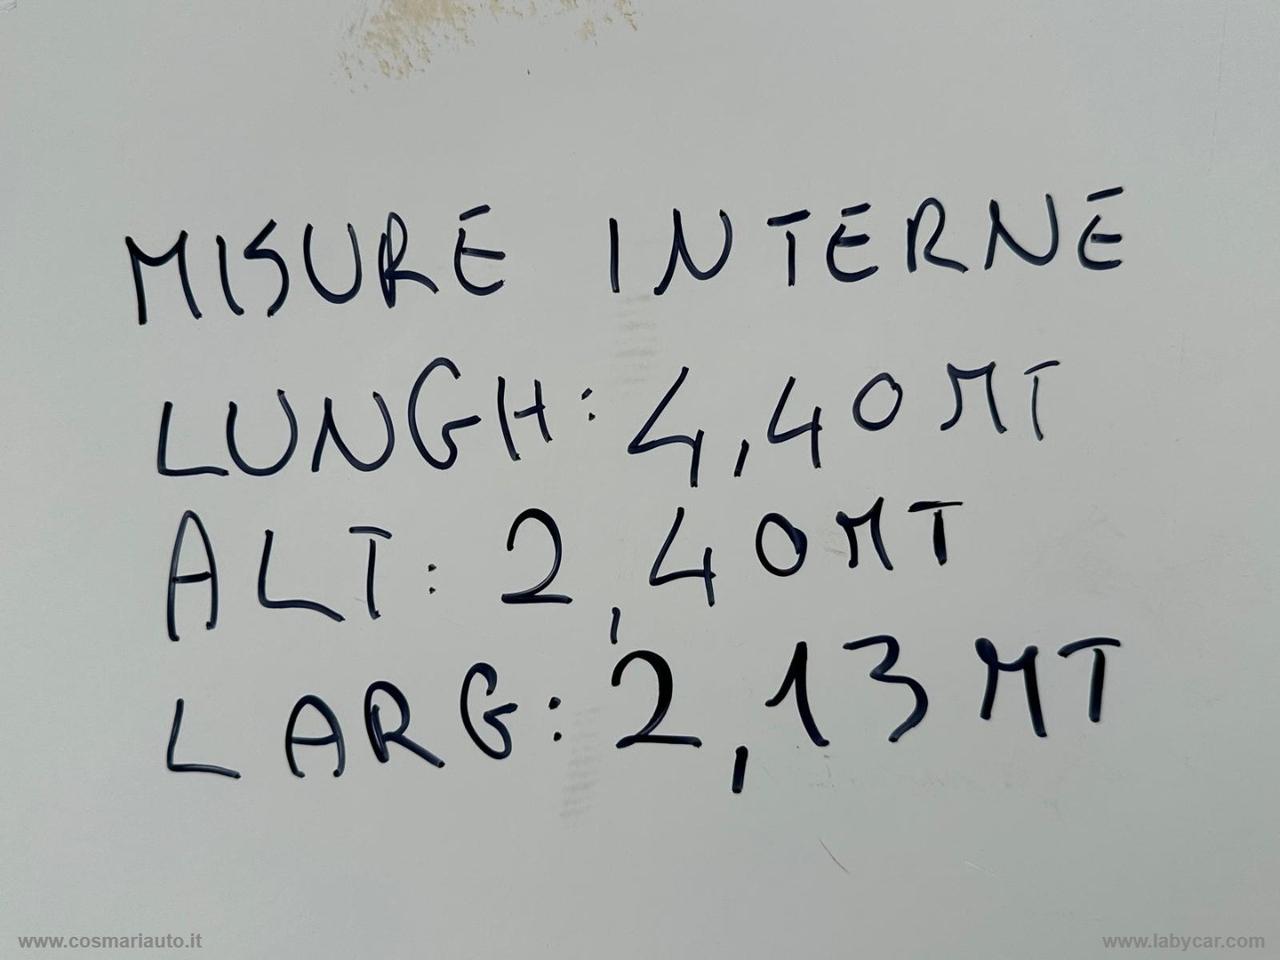 MISURE INTERNE
LUNGH: 4,40 MT
ALT: 2,40 MT
LARG: 2,13 MT
www.cosmariauto.it
www.labycar.com